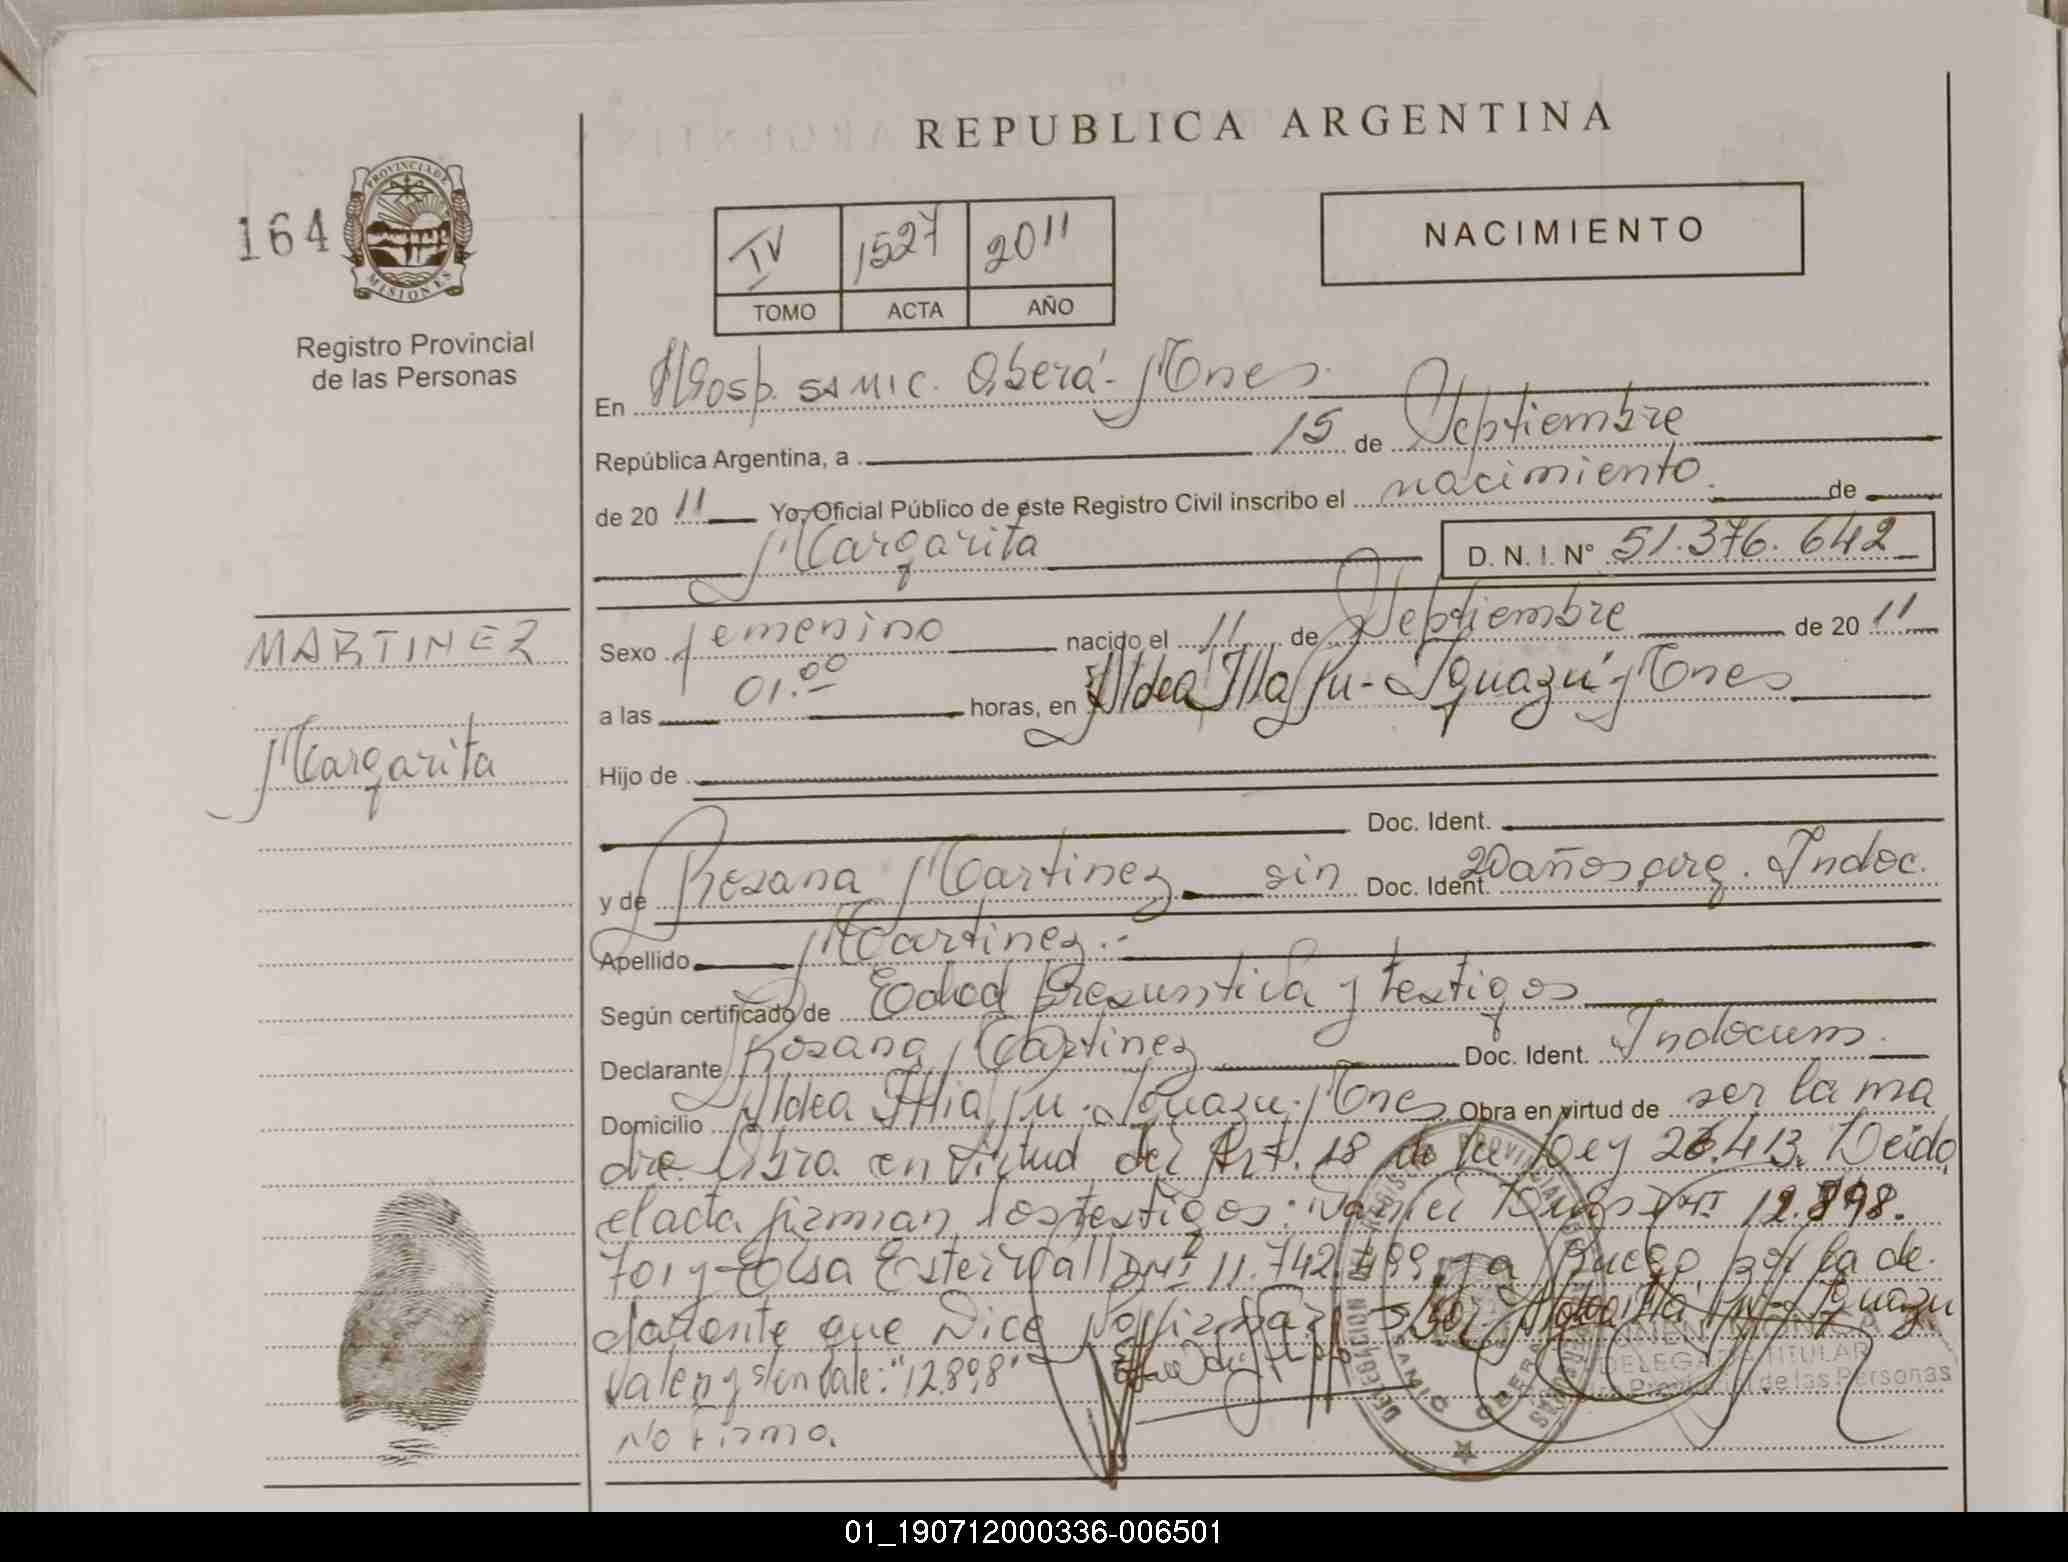 REPUBLICA ARGENTINA
164
PROVINCIA DE
MISIONES
Registro Provincial
de las Personas
IV 1527 2011
TOMO ACTA AÑO
NACIMIENTO
En Hosp. SAMIC. Oberá - Mnes
República Argentina, a 15 de Septiembre
de 20 11 Yo, Oficial Público de este Registro Civil inscribo el nacimiento. de
Margarita D. N. I. N° 51.376.642
MARTINEZ
Margarita
Sexo femenino nacido el 11 de Septiembre de 20 11
a las 01.00 horas, en Aldea Illa Pu - Iguazú - Mnes
Hijo de
Doc. Ident.
y de Rosana Martinez sin Doc. Ident. 20 años, arg. Indoc.
Apellido Martinez.-
Según certificado de Edad Presuntiva y testigos
Declarante Rosana Martinez Doc. Ident. Indocum.
Domicilio Aldea Pu - Iguazu - Mnes Obra en virtud de ser la ma
dre Obra en virtud del Art. 18 de la Ley 26.413. Leido
el acta firman los testigos: 12.898.
701 y Elsa Ester DNI 11.742.499 - a Ruego por la de-
clarante que Dice No firmar - Pu - Iguazu
Valen y s/en Vale: "12.898"
No Firmo.
DELEGADA TITULAR
Provincial de las Personas
SAMIC OBERA
01_190712000336-006501